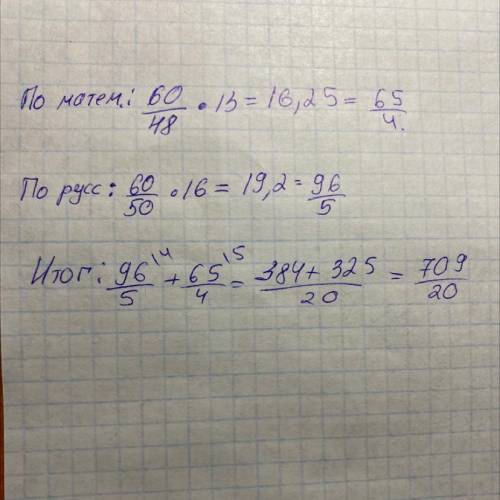 По матем.: 60/48 • 13 = 16,25 = 65/4.
По русс: 60/50 • 16 = 19,2 = 96/5
Итог: 96/5 \4 + 65/4 \5 = 384 + 325/20 = 709/20